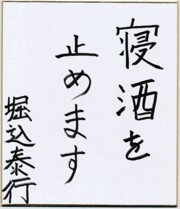 寝酒を
止めます
堀込泰行